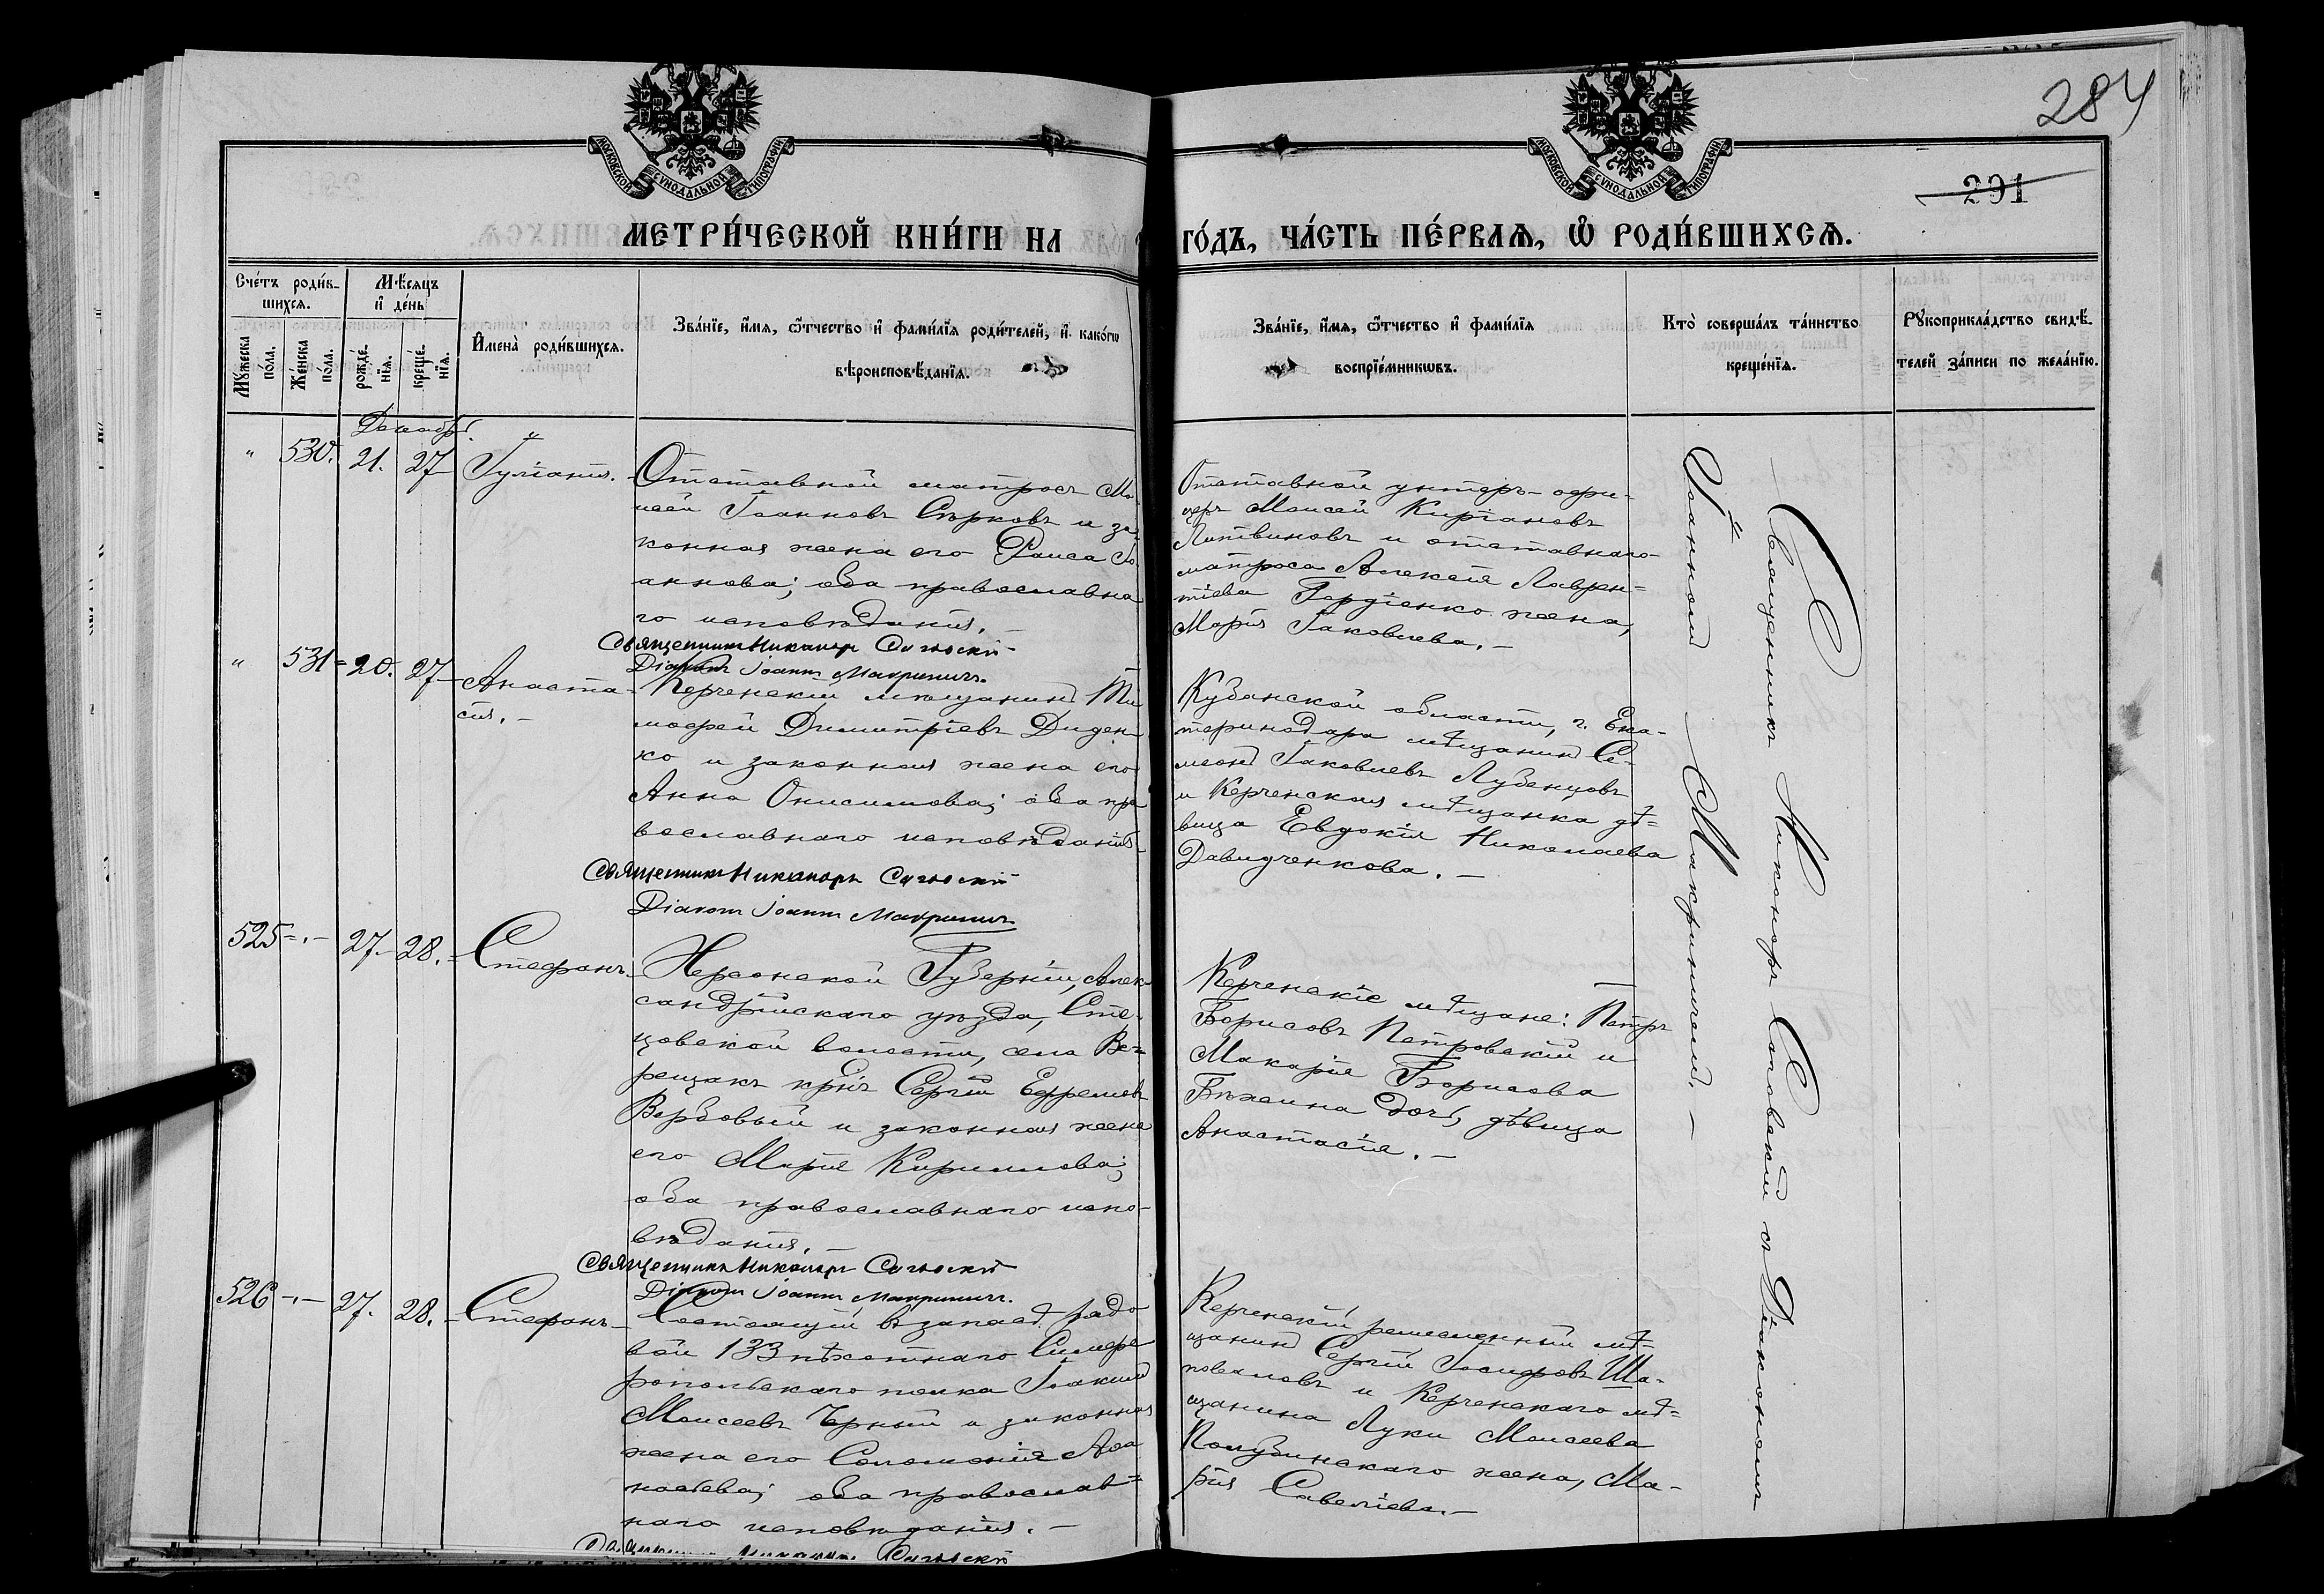 284
291
МОСКОВСКОЙ СѴНОДАЛЬНОЙ ТИПОГРАФІИ
МОСКОВСКОЙ СѴНОДАЛЬНОЙ ТИПОГРАФІИ
МЕТРИ́ЧЕСКОЙ КНИ́ГИ НА
ГО́ДЪ, ЧА́СТЬ ПЕ́РВАѦ, Ѡ҆ РОДИ́ВШИХСѦ.
Сче́тъ роди́в-
шихсѧ.
Мꙋ́жеска по́ла.
Же́нска по́ла.
Мѣ́сѧцъ
и҆ де́нь
рожде́-
нїѧ.
креще́-
нїѧ.
И҆мена̀ роди́вшихсѧ.
Зва́нїе, и҆́мѧ, ѿ́чество и҆ фами́лїѧ роди́телей, и҆ како́гѡ
вѣроисповѣ́данїѧ.
Зва́нїе, и҆́мѧ, ѿ́чество и҆ фами́лїѧ
воспрїе́мникѡвъ.
Кто̀ соверша́лъ та́инство
креще́нїѧ.
Рꙋкоприкла́дство свидѣ́-
телей за́писи по жела́нїю.
Декабрь.
" 530. 21. 27 Іуліанія.
Отставной матросъ Мо-
исей Іоанновъ Сѣрковъ и за-
конная жена его Раиса Іо-
аннова; оба православна
го исповѣданія. –
Священникъ Никаноръ
Діаконъ Іоаннъ Макринич.
Отставной унтеръ-офи-
церъ Моисей Кирiановъ
Литвиновъ и отставнаго
матроса Алексія Лаврен-
тіева Гордіенко жена,
Марія Іаковлева. –
" 531 = 20. 27 Анаста-
сія. –
Керченскій мѣщанинъ Ти
мофей Димитріевъ Диден-
ко и законная жена его
Анна Онисимова; оба пра
вославнаго исповѣданія
Священникъ Никаноръ
Діаконъ Іоаннъ Макринич
Кубанской области, г. Ека-
теринодара мѣщанинъ Си-
меонъ Іаковлевъ Лубенцовъ
и Керченская мѣщанка дѣ-
вица Евдокія Николаева
Давидченкова. –
525 = " – 27. 28. – Стефанъ.
Херсонской Губерніи, Алек
сандрійскаго уѣзда, Сте-
цовской волости, села Ве-
рещакъ кр-нъ Сергій Ефремовъ
Вербовый и законная жена
его Марія Кириллова;
оба православнаго испо-
вѣданія. –
Священникъ Никаноръ
Діаконъ Іоаннъ Макринич.
Керченскіе мѣщане: Петръ
Борисовъ Петровскій и
Макарія Борисова
дочь, дѣвица
Анастасія. –
526 – " – 27. 28. – Стефанъ –
Состоящій въ запасѣ рядо
вой 133 пѣхотнаго Симфе
ропольскаго полка Іоакимъ
Моисеевъ Черный и законная
жена его Соломонія Аѳа
насьева; оба православ-
наго исповѣданія. –
Священникъ Никаноръ
Керченскій ремесленный мѣ-
щанинъ Сергій Іосифовъ Ша-
поваловъ и Керченскаго мѣ-
щанина Луки Моисеева
жена, Ма-
рія Савеліева. –
Священникъ Никаноръ съ Діакономъ
Іоанномъ Макриничемъ. –